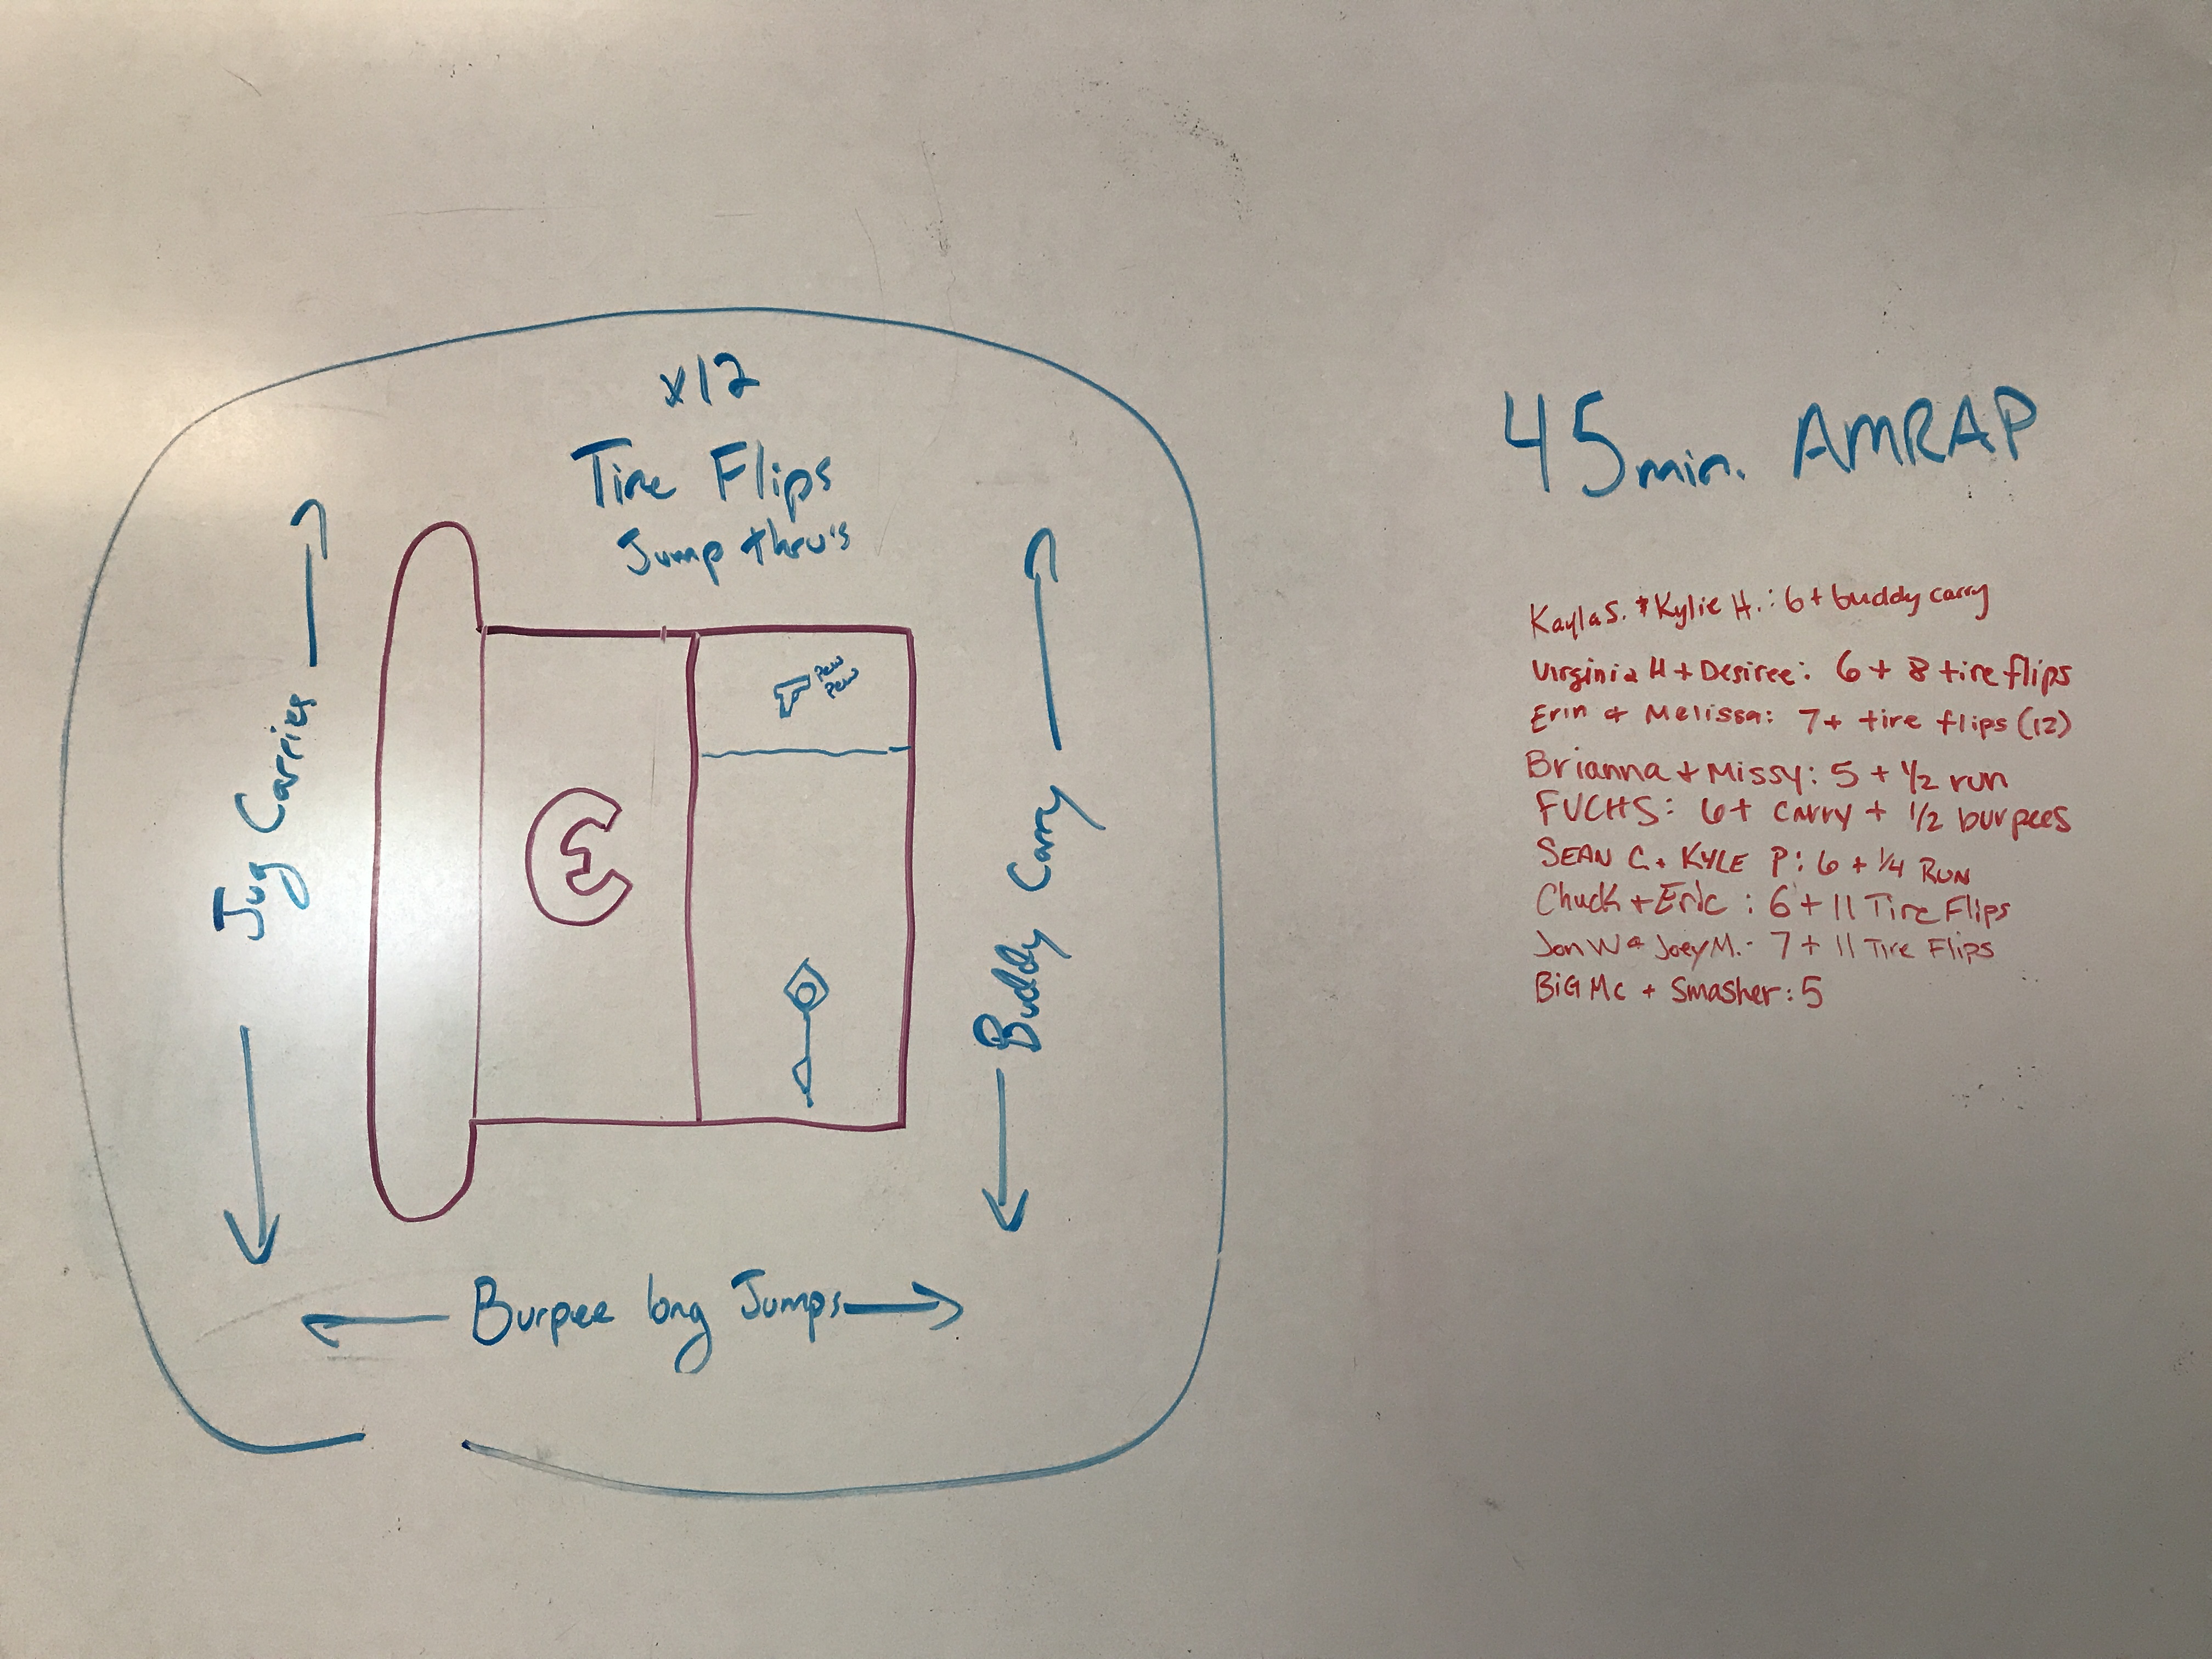 x12
Tire Flips
Jump thru's
Jug Carries
pew
pew
Buddy Carry
Burpee long Jumps
45 min. AMRAP
Kayla S. + Kylie H.: 6 + buddy carry
Virginia H + Desiree: 6 + 8 tire flips
Erin & Melissa: 7 + tire flips (12)
Brianna + Missy: 5 + 1/2 run
FUCHS: 6 + carry + 1/2 burpees
SEAN C. + KYLE P: 6 + 1/4 RUN
Chuck + Eric : 6 + 11 Tire Flips
Jon W & Joey M. - 7 + 11 Tire Flips
BiG Mc + Smasher: 5